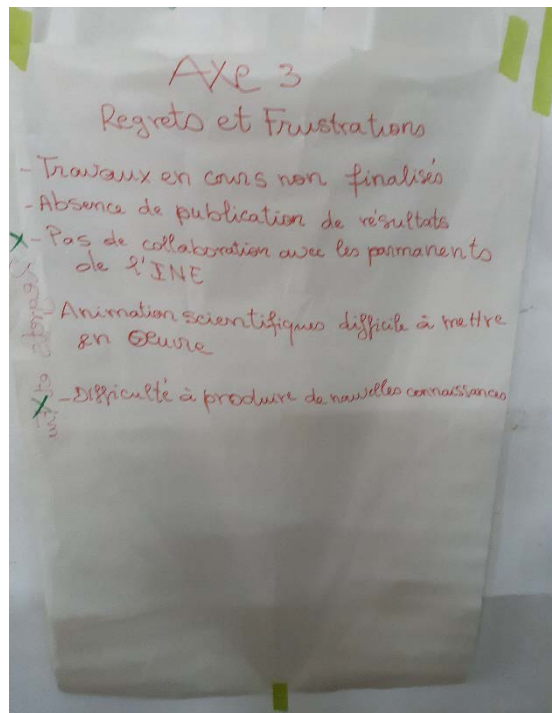 AXe 3
Regrets et Frustrations
- Travaux en cours non finalisés
- Absence de publication de résultats
x - Pas de collaboration avec les parmanents
de l'INE
Animation scientifiques difficile à mettre
en Oeuvre
x - Difficulté à produire de nouvelles connaissances